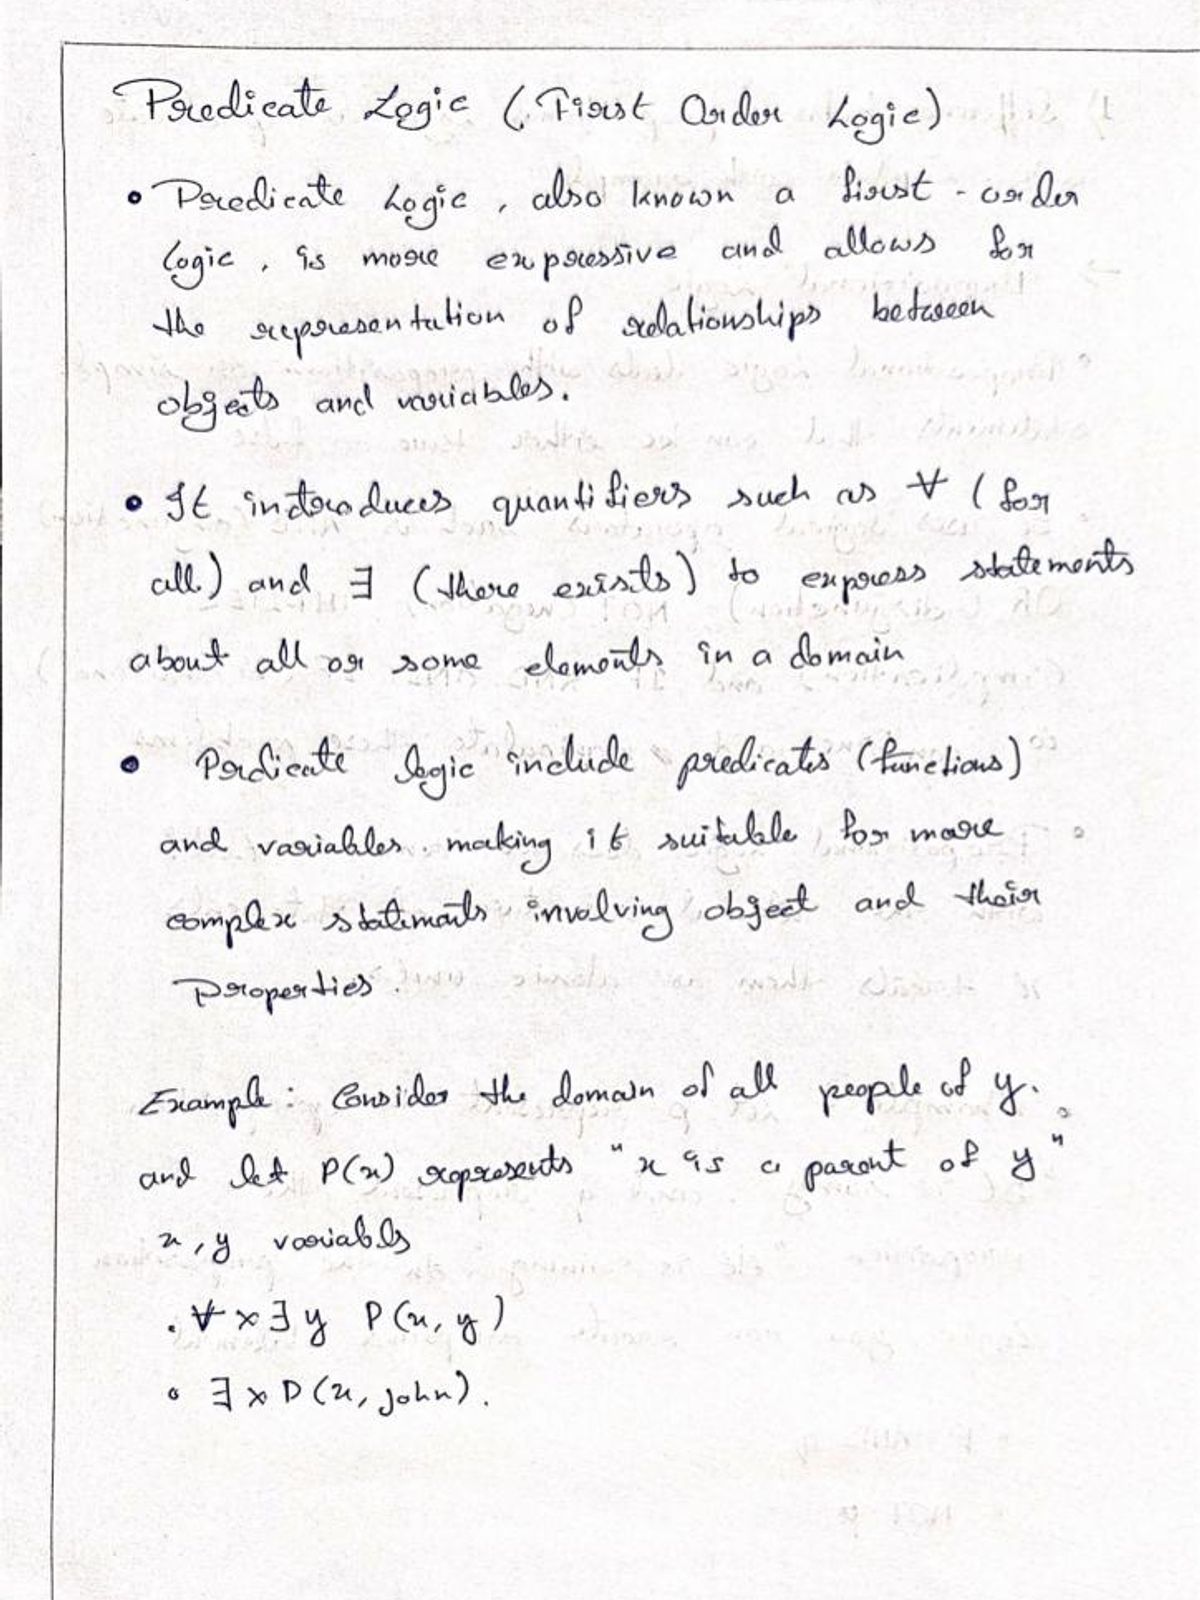 Predicate Logic (First Order Logic)
• Predicate Logic, also known a first-order
logic, is more expressive and allows for
the representation of relationships between
objects and variables.
• It introduces quantifiers such as ∀ (for
all) and ∃ (there exists) to express statements
about all or some elements in a domain
• Perdicate logic include predicates (functions)
and variables. making it suitable for more
complex statements involving object and their
properties.
Example: Consider the domain of all people of y.
and let P(x) represents "x is a parent of y"
x, y variables
. ∀x∃y P(x, y)
• ∃x D(x, john).